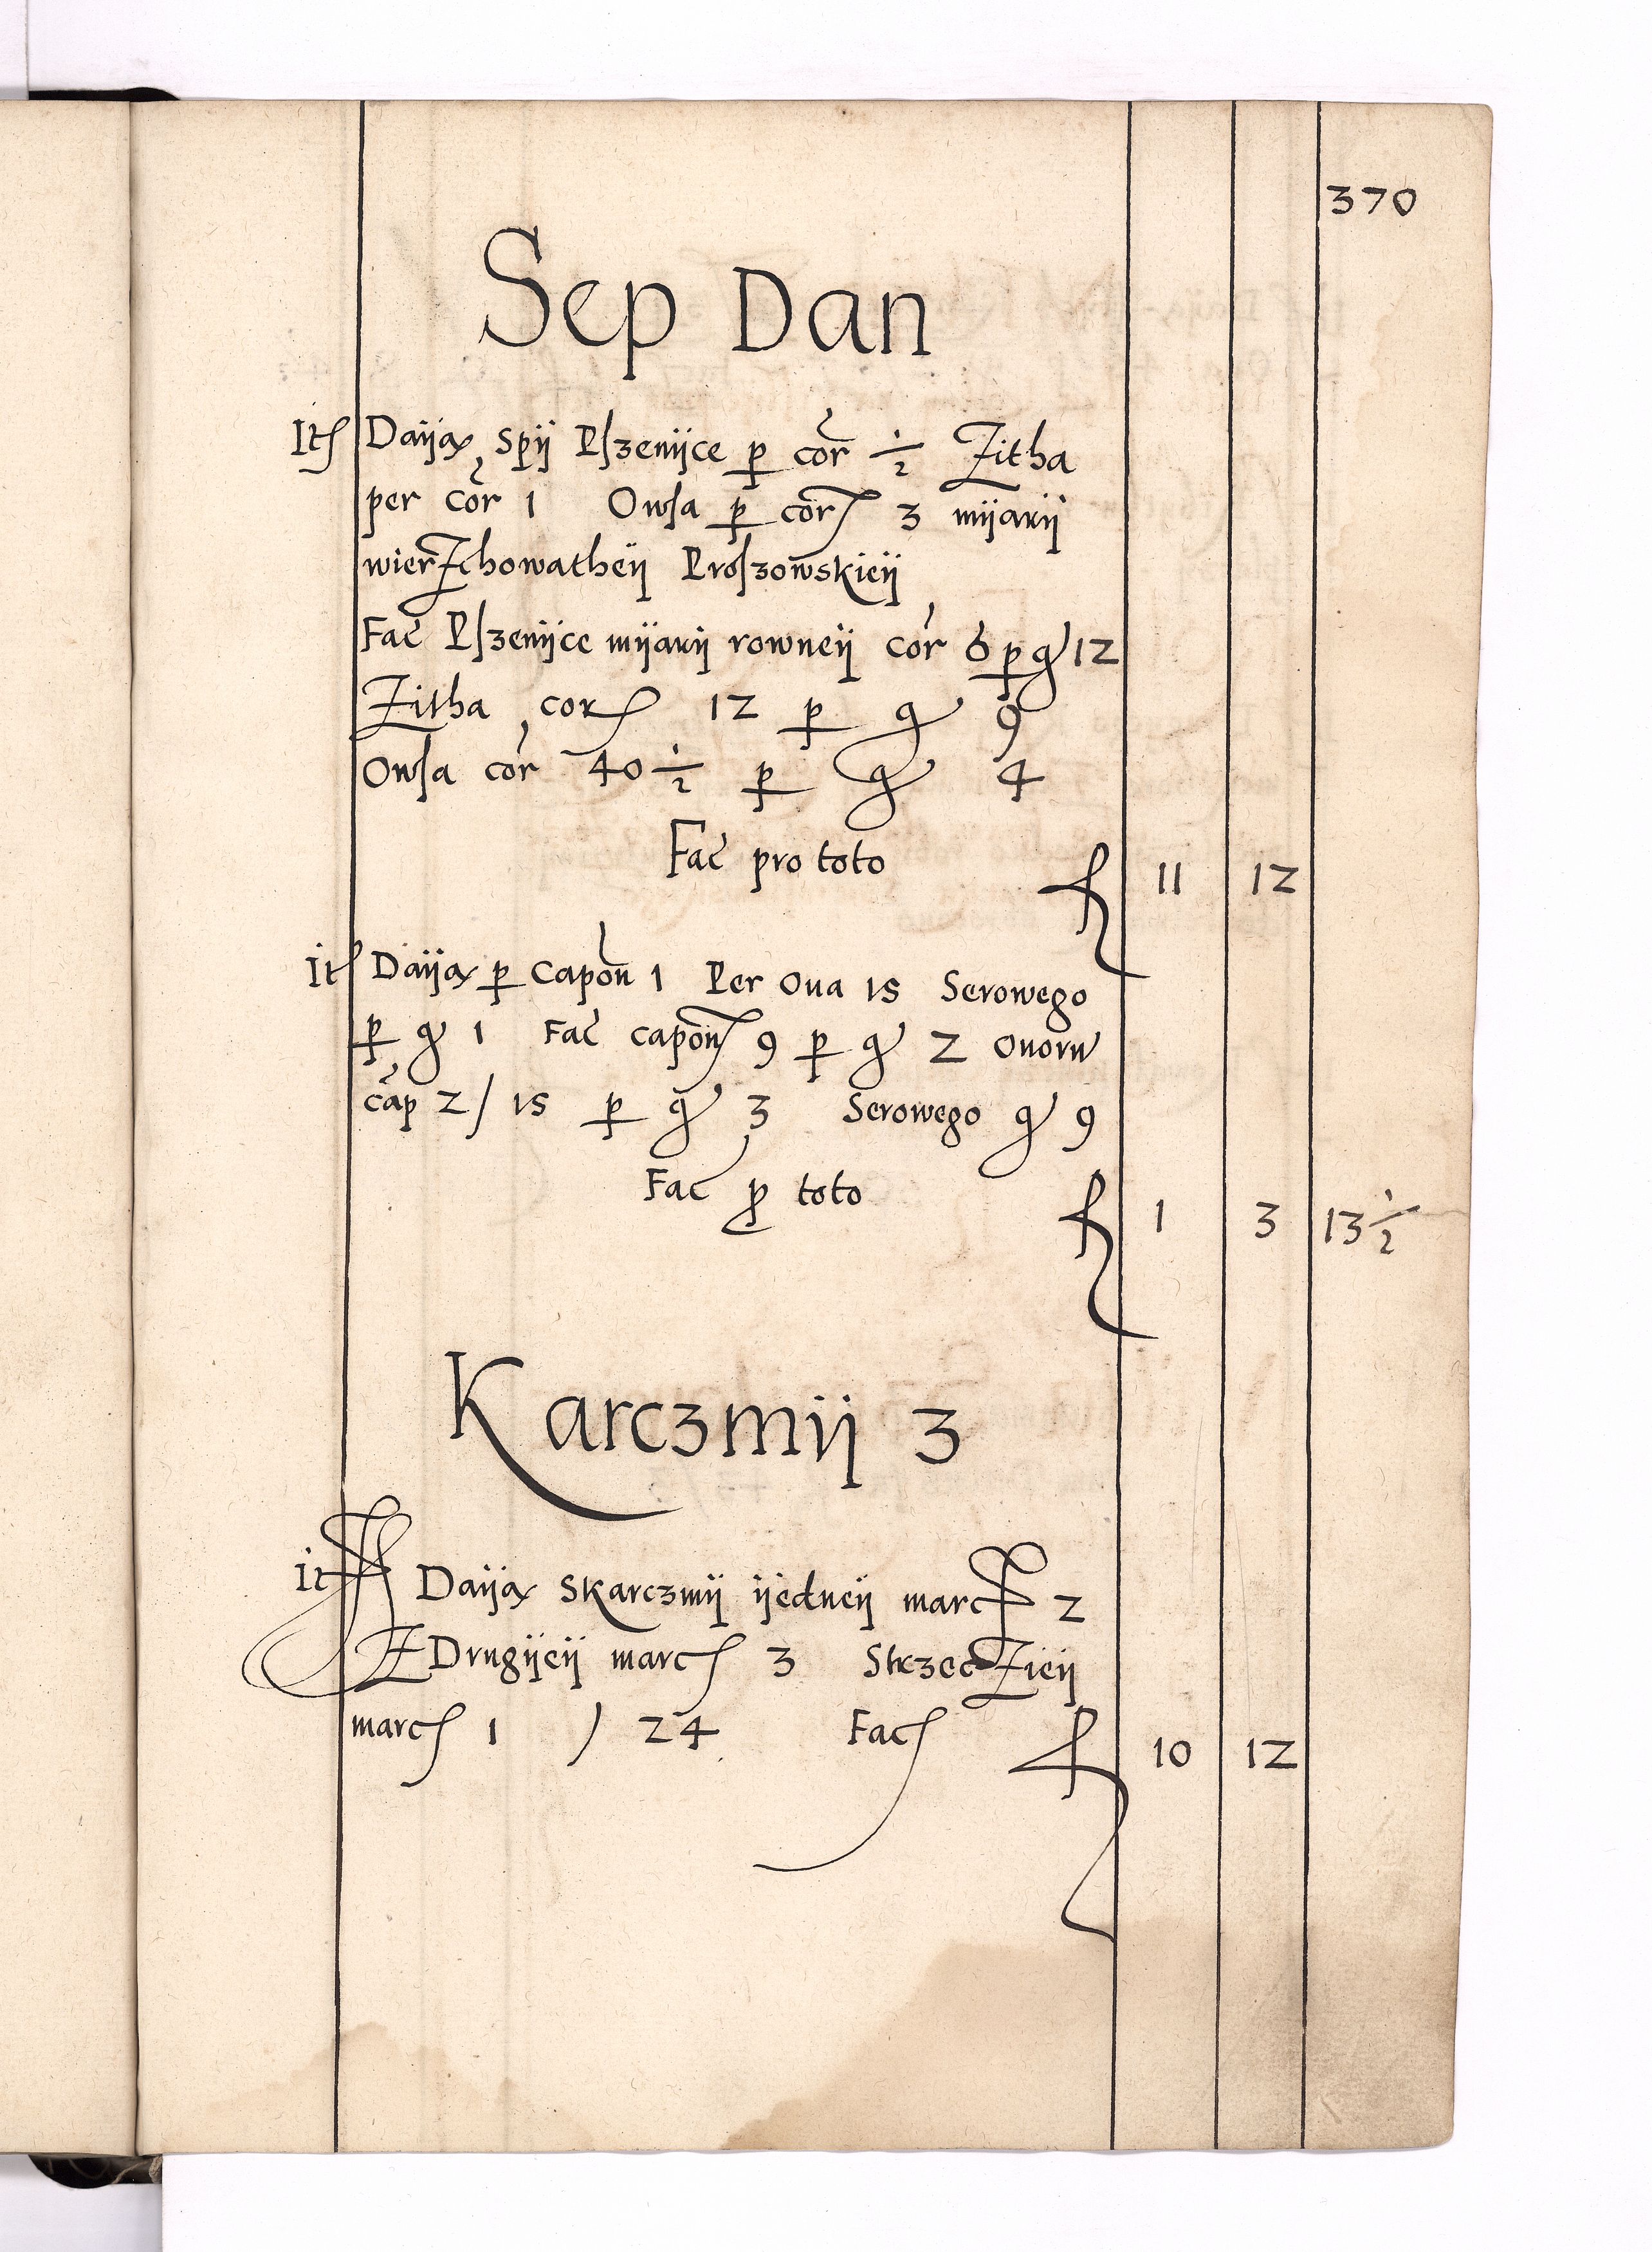 370
Sep Dan
It Daiją spij Pszenijce p cor ½ Zitha
per cor 1 Owsa p cor 3 mijarij
wierZchowatheij Proszowskieij
Fac Pszenijce mijarij rowneij cor 6 p gr 12
Zitha cor 12 p gr 9
Owsa cor 40 ½ p gr 4
Fac pro toto f 11 12
It Daiją p Capon 1 Per Oua 15 Serowego
p gr 1 Fac capon 9 p gr 2 Ouoru
cap 2/15 p gr 3 Serowego gr 9
Fac p toto f 1 3 13 ½
Karczmij 3
It Daiją Skarczmij ijedneij marc 2
ZDrugijeij marc 3 StrzecZieij
marc 1 / 24 Fac f 10 12